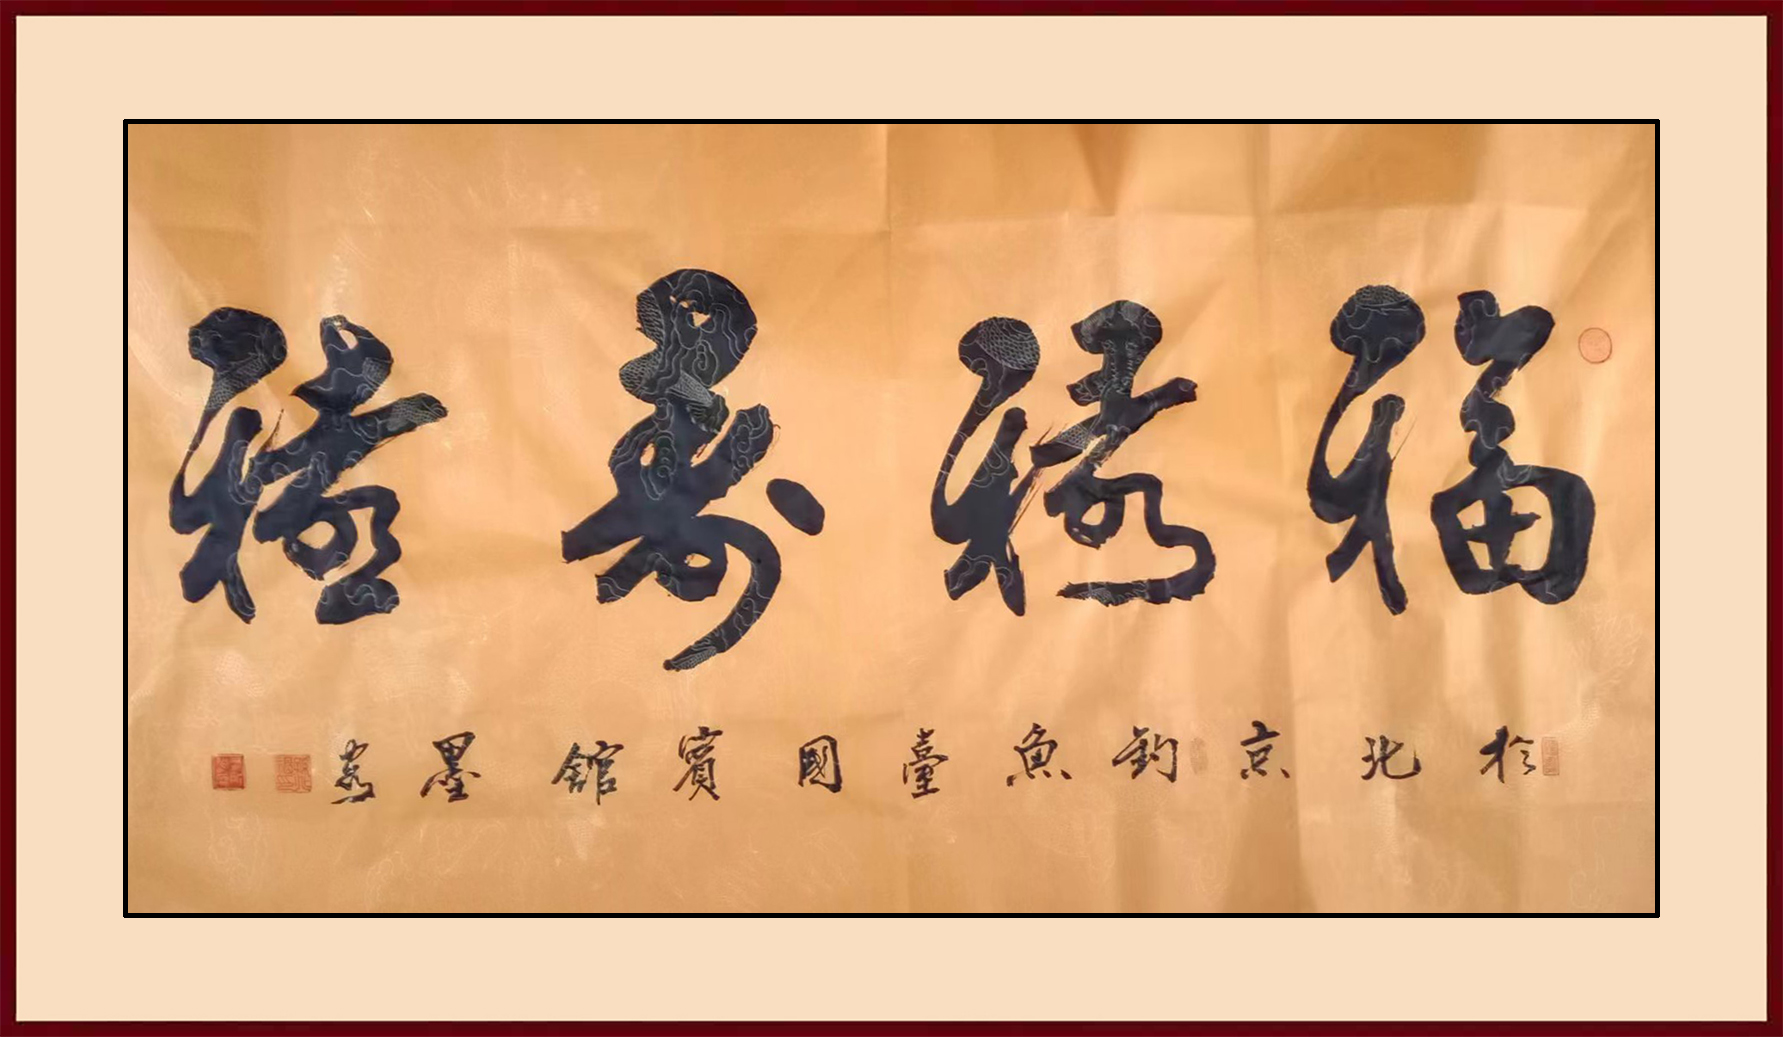 福祿壽禧
於北京釣魚臺國賓館墨